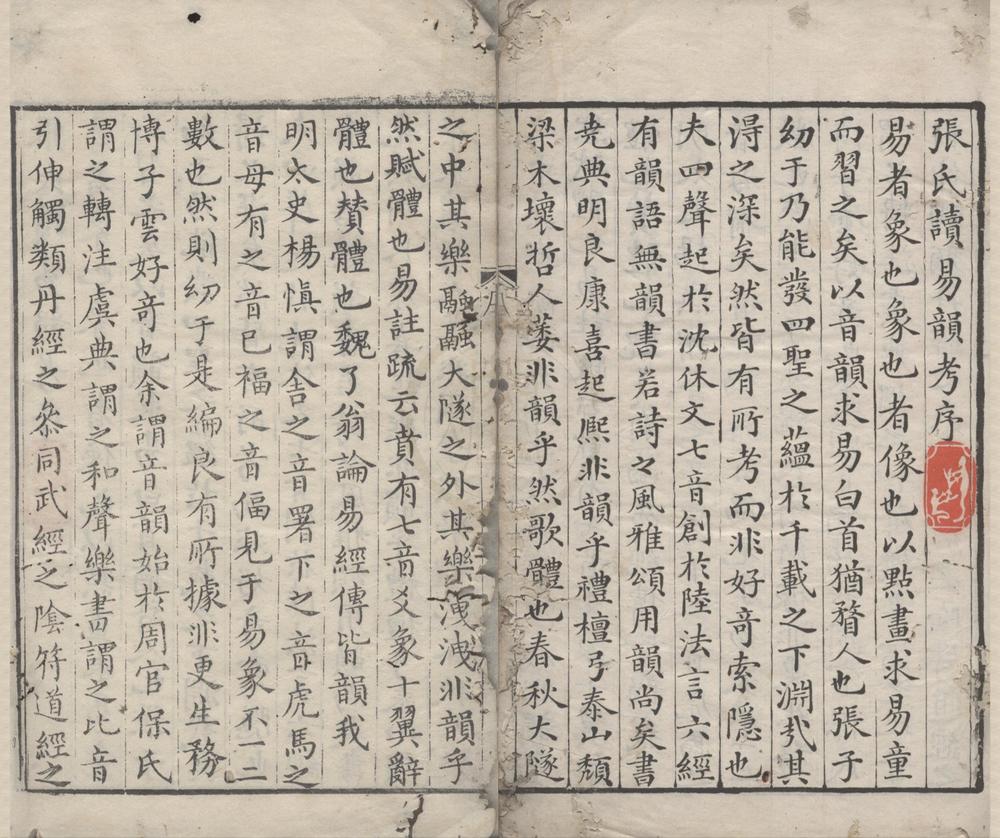 張氏讀易韻考序
易者象也象也者像也以點畫求易童
而習之矣以音韻求易白首猶瞀人也張子
幼于乃能發四聖之蘊於千載之下淵㢤其
淂之深矣然皆有所考而非好竒索隱也
夫四聲起於沈休文七音創於陸法言六經
有韻語無韻書若詩之風雅頌用韻尚矣書
尭典明良康喜起熈非韻乎禮檀弓泰山頽
梁木壞哲人萎非韻乎然歌體也春秋大隧
序
之中其樂融融大隧之外其樂洩洩非韻乎
然賦體也易註疏云賁有七音爻象十翼辭
體也賛體也魏了翁論易經傳皆韻我
明太史楊慎謂舍之音署下之音虎馬之
音母有之音巳福之音偪見于易象不一二
數也然則幼于是編良有所據非更生務
博子雲好竒也余謂音韻始於周官保氏
謂之轉注虞典謂之和聲樂書謂之比音
引伸觸類丹經之叅同武經之隂符道經之